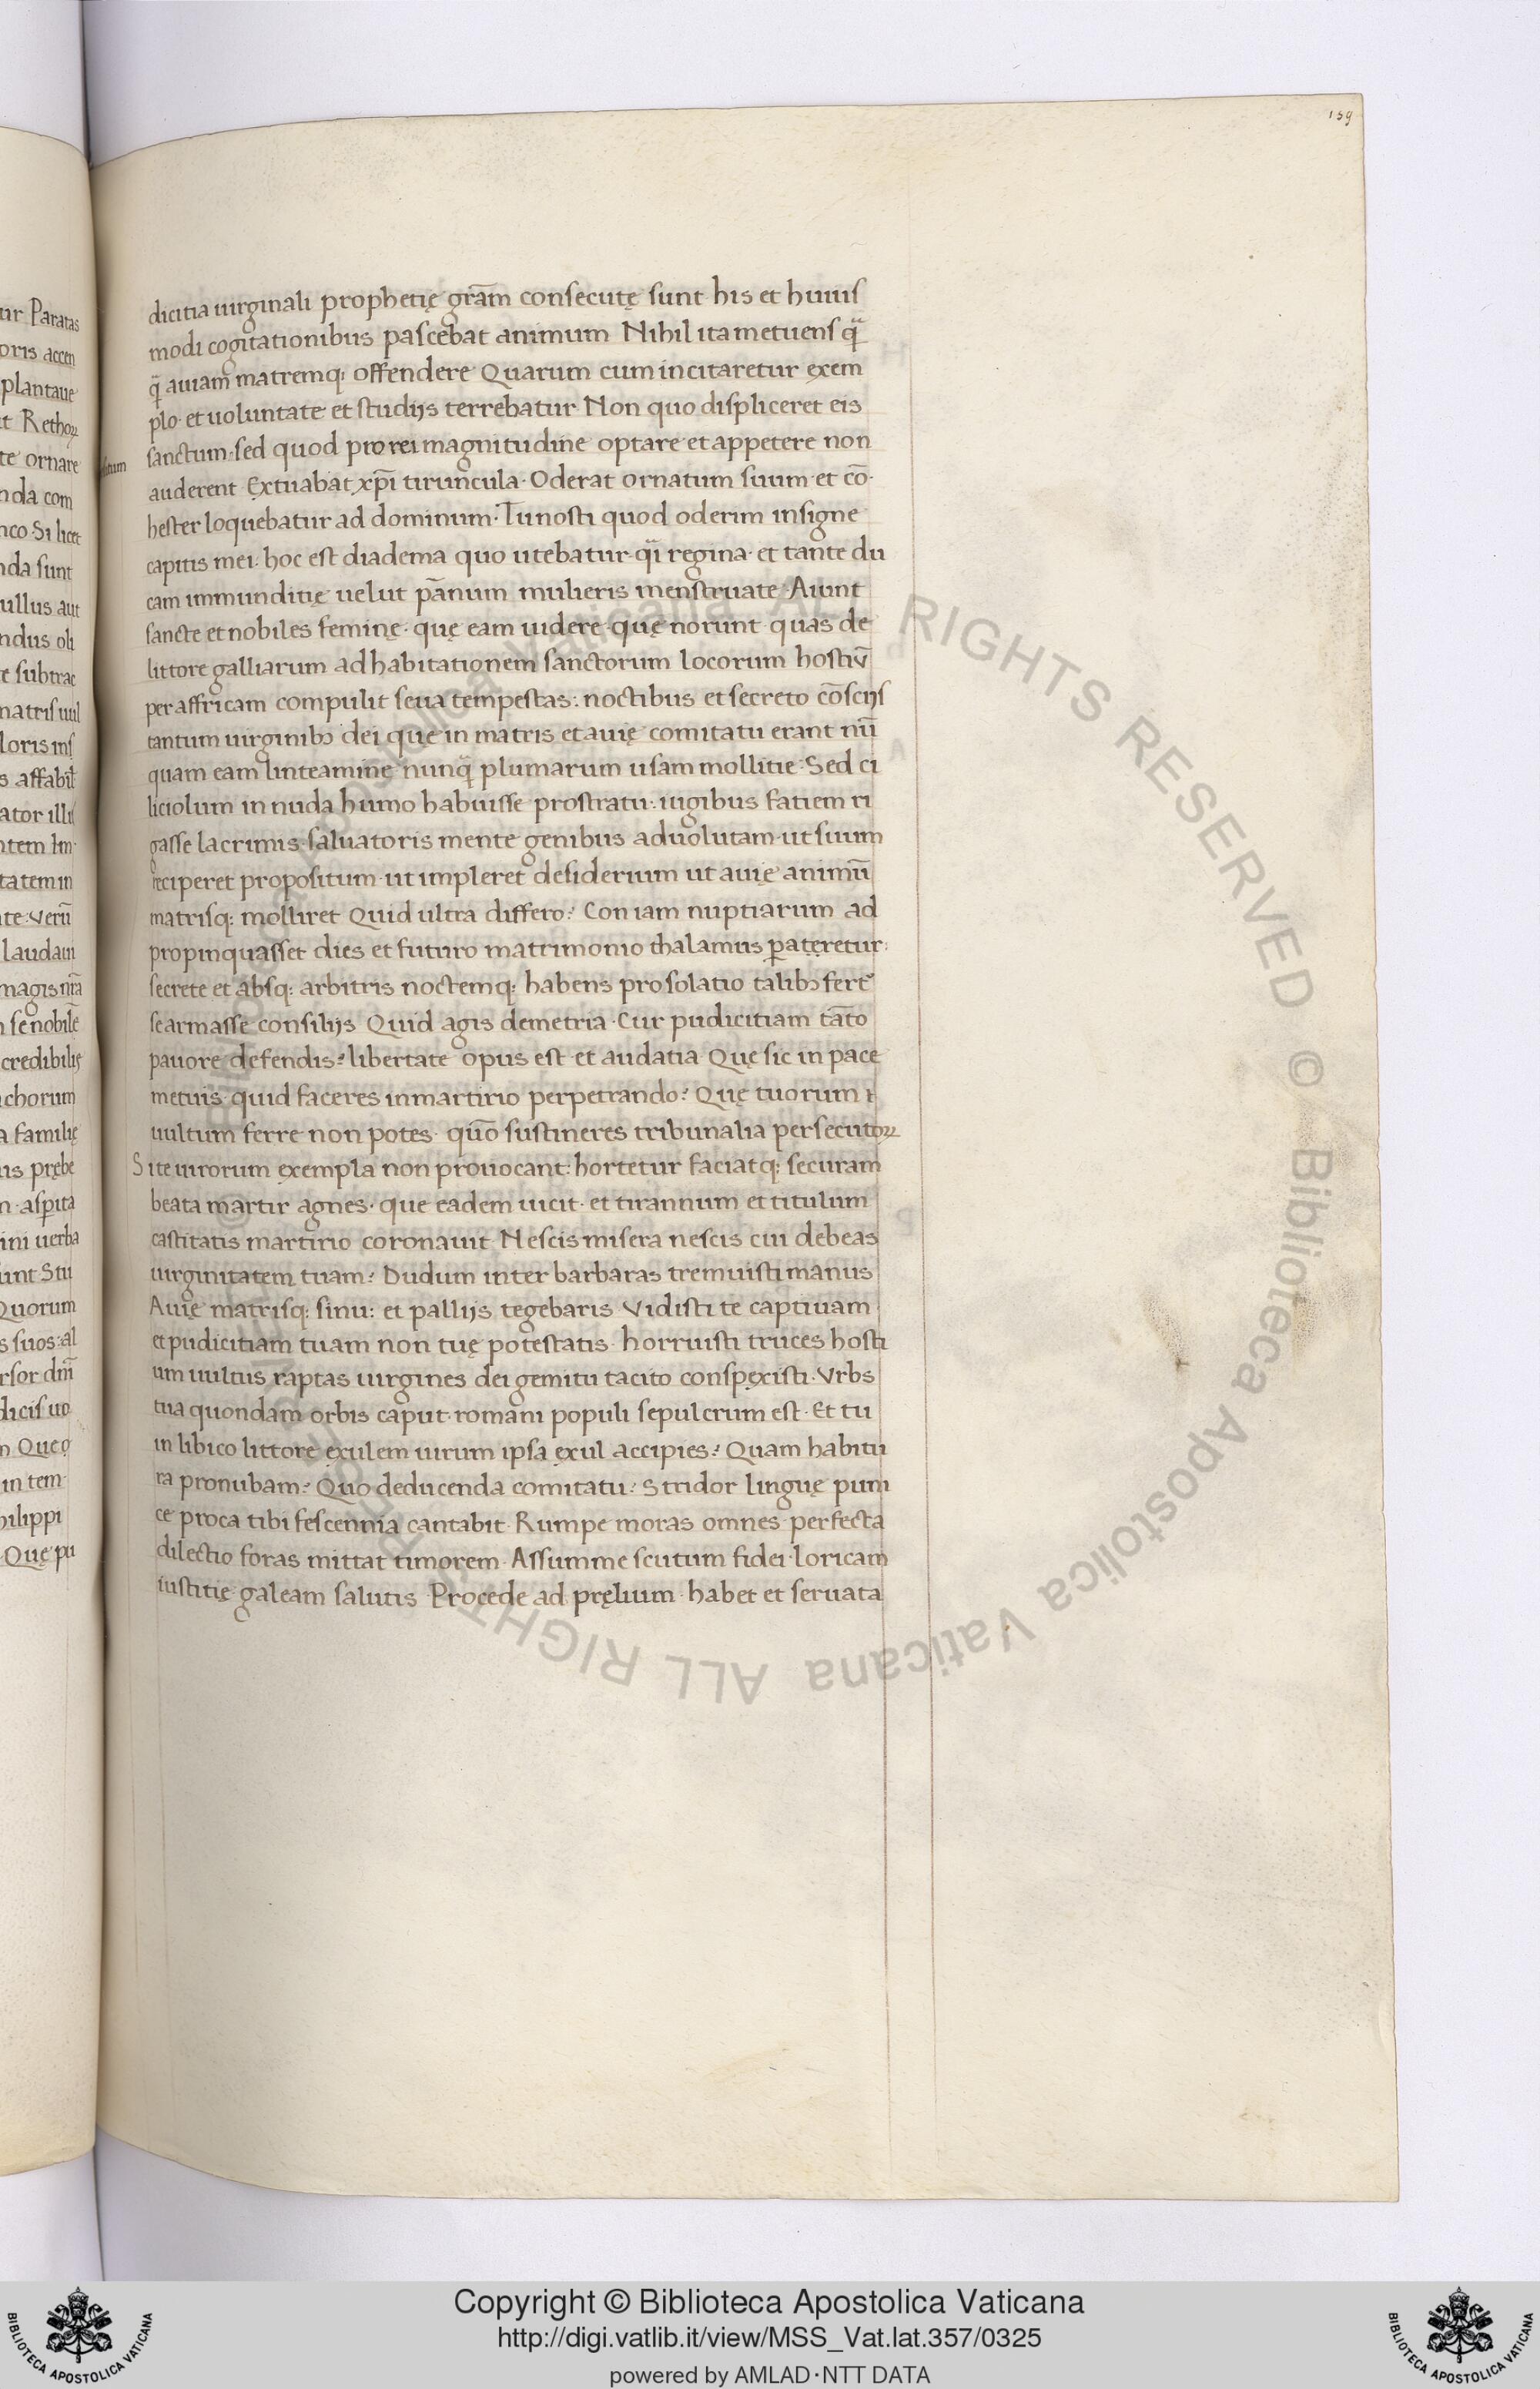 159
dicitia uirginali prophetię grām consecutę sunt his et huius
modi cogitationibus pascebat animum Nihil ita metuens q̄
q̄ auiam matremq; offendere Quarum cum incitaretur exem
plo· et uoluntate et studijs terrebatur Non quo displiceret eis
sanctum· sed quod pro rei magnitudine optare et appetere non
auderent Extuabat xp̄i tiruncula· Oderat ornatum suum· et cō·
hester loquebatur ad dominum· Tu nosti quod oderim insigne
capitis mei· hoc est diadema quo utebatur· q̄i regina· et tante du
cam immunditię uelut pānum mulieris menstruate· Aiunt
sancte et nobiles feminę· quę eam uidere· quę norunt· quas de
littore galliarum ad habitationem sanctorum locorum hostiū
per affricam compulit seua tempestas: noctibus et secreto cōscijs
tantum uirginibꝫ dei quę in matris et auię comitatu erant nū
quam eam linteamine nunq̄ plumarum usam mollitie· Sed ci
liciolum in nuda humo habuisse pro stratu: iugibus fatiem ri
gasse lacrimis· saluatoris mente genibus aduolutam· ut suum
reciperet propositum· ut impleret desiderium ut auię animū
matrisq; molliret Quid ultra differo? Con iam nuptiarum ad
propinquasset dies et futuro matrimonio thalamus ꝑateretur:
secrete et absq; arbitris noctemq; habens pro solatio talibꝫ fert᷒
se armasse consilijs Quid agis demetria· Cur pudicitiam tāto
pauore defendis? libertate opus est et audatia Quę sic in pace
metuis· quid faceres in martirio perpetrando? Quę tuorum
uultum ferre non potes· quō sustineres tribunalia persecutoꝝ
Si te uirorum exempla non prouocant: hortetur faciatq; securam
beata martir agnes· que eadem uicit· et tirannum et titulum
castitatis martirio coronauit Nescis misera nescis cui debeas
uirginitatem tuam? Dudum inter barbaras tremuisti manus
Auię matrisq; sinu: et pallijs tegebaris Vidisti te captiuam
et pudicitiam tuam non tuę potestatis· horruisti truces hosti
um uultus raptas uirgines dei gemitu tacito conspexisti· Vrbs
tua quondam orbis caput· romani populi sepulcrum est· Et tu
in libico littore exulem uirum ipsa exul accipies? Quam habitu
ra pronubam? Quo deducenda comitatu? Stridor linguę puni
ce proca tibi fescennia cantabit· Rumpe moras omnes· perfecta
dilectio foras mittat timorem· Assumme scutum fidei· loricam
iustitię· galeam salutis· Procede ad pręlium· habet et seruata
Copyright © Biblioteca Apostolica Vaticana
http://digi.vatlib.it/view/MSS_Vat.lat.357/0325
powered by AMLAD·NTT DATA